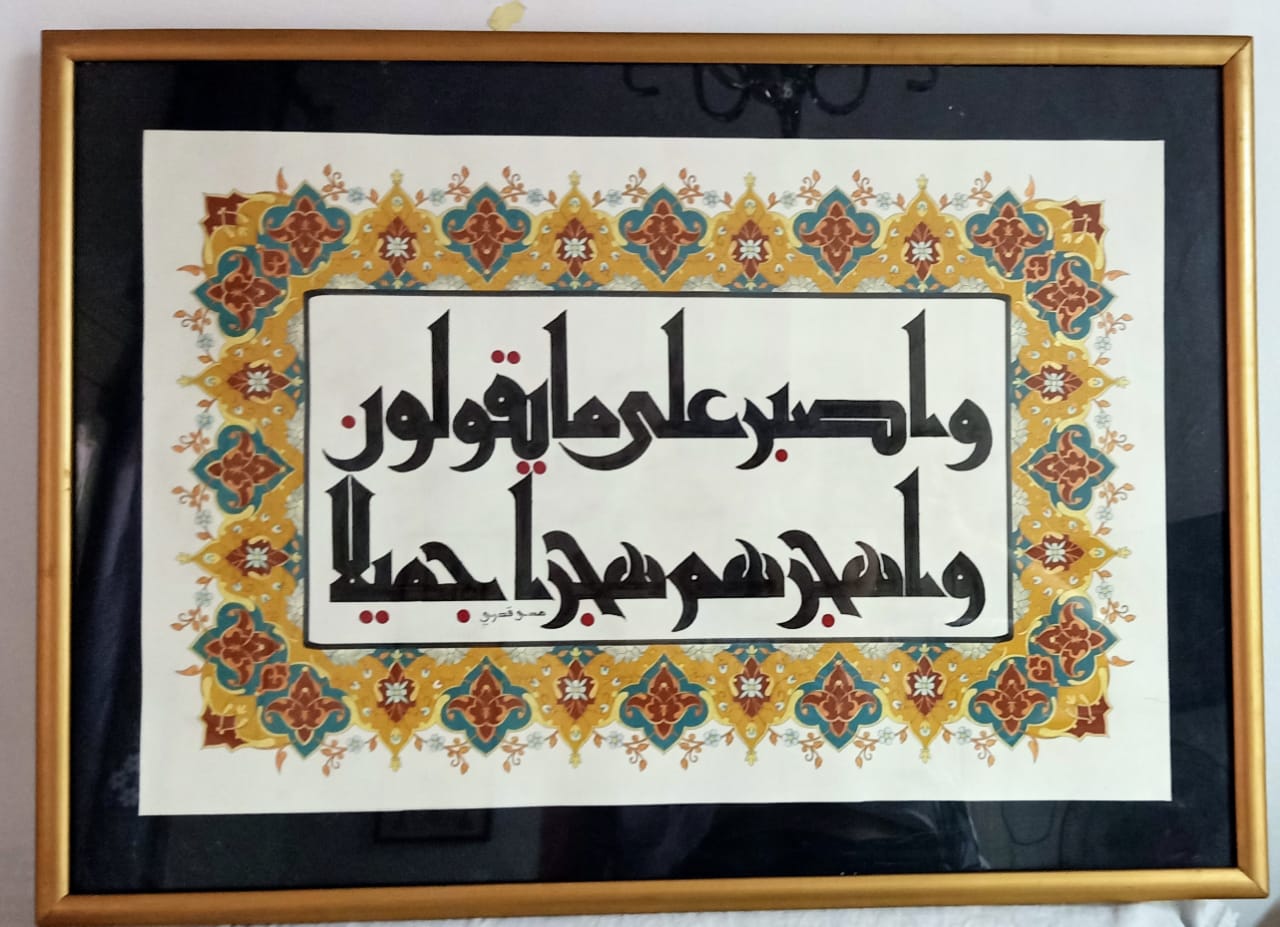 واصبر على ما يقولون
واهجرهم هجرا جميلا